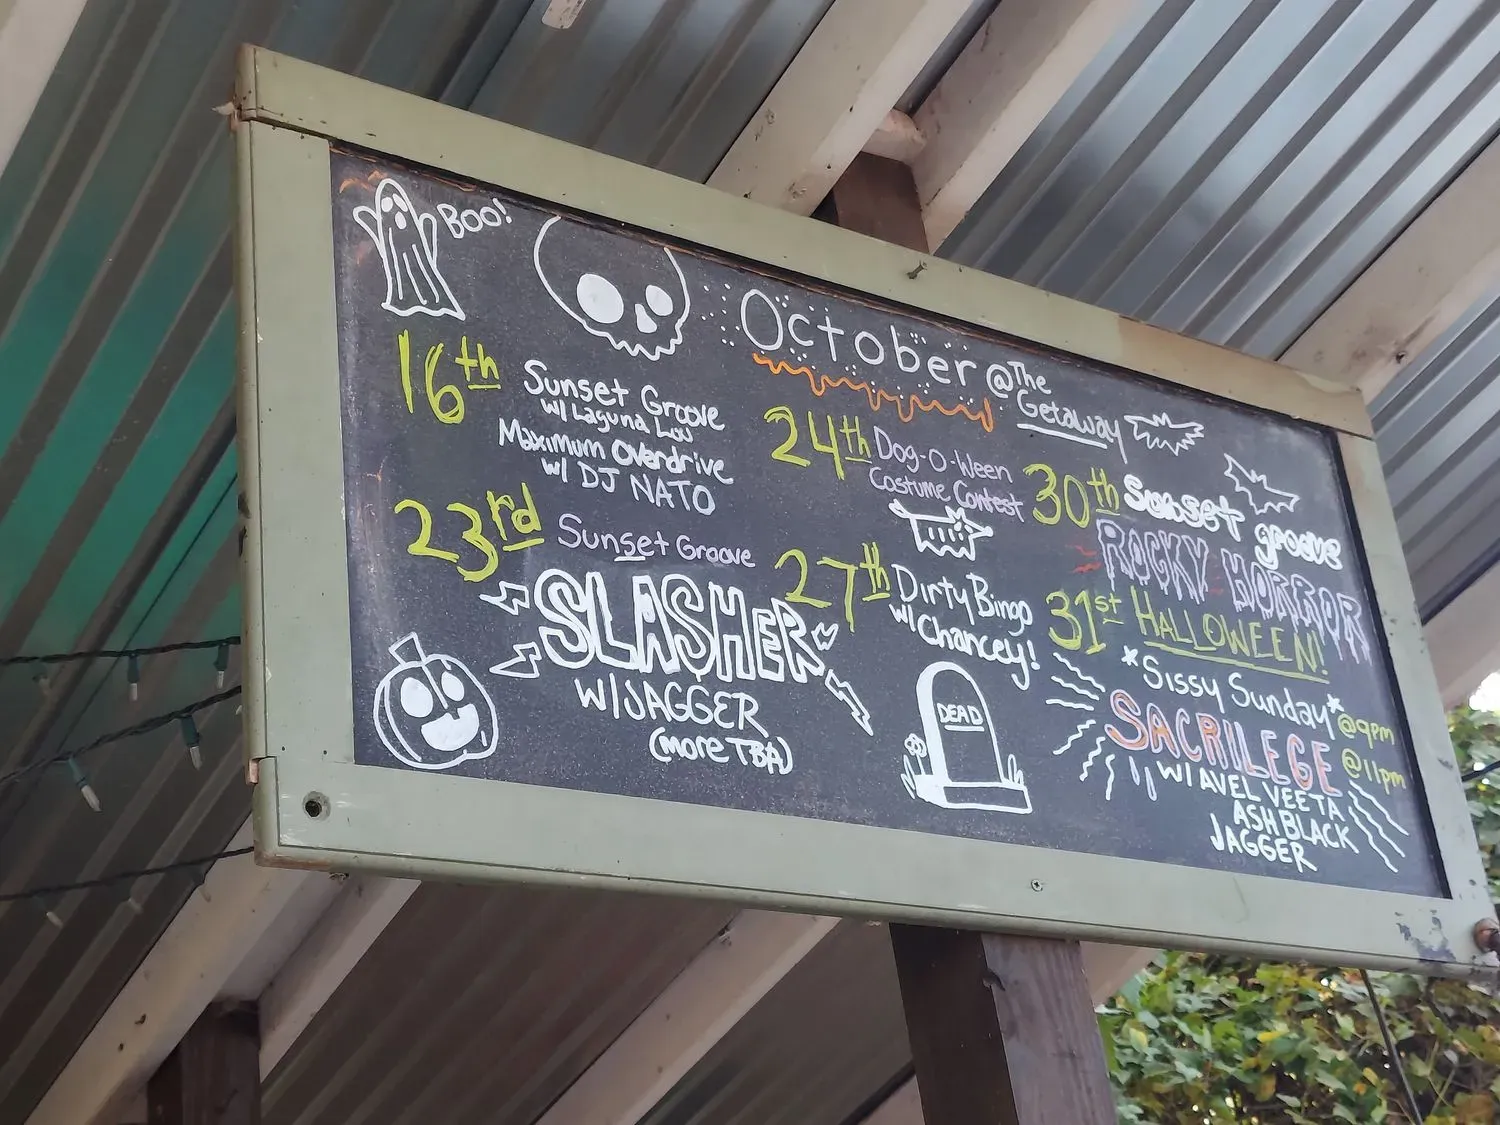 BOO!
October @ The Getaway
16th Sunset Groove
w/ Laguna Luv
Maximum Overdrive
w/ DJ NATO
23rd Sunset Groove
SLASHER
W/ JAGGER
(more TBA)
24th Dog-O-Ween
Costume Contest
27th Dirty Bingo
w/ Chancey!
DEAD
30th Sunset groove
ROCKY HORROR
31st HALLOWEEN!
*Sissy Sunday* @9pm
SACRILEGE @11pm
W/ AVEL VEETA
ASH BLACK
JAGGER